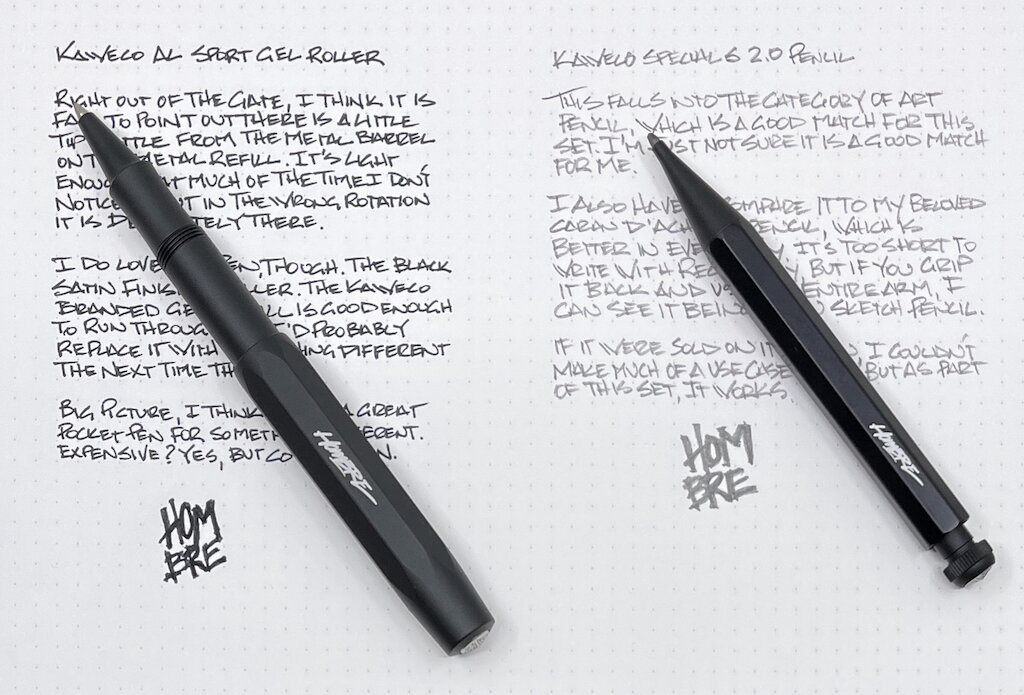 KAWECO AL SPORT GEL ROLLER
RIGHT OUT OF THE GATE, I THINK IT IS
TO POINT OUT THERE IS A LITTLE
TIP FROM THE METAL BARREL
METAL REFILL. IT'S LIGHT
MUCH OF THE TIME I DON'T
IN THE WRONG ROTATION
IT IS THERE.
I DO LOVE THOUGH. THE BLACK
SATIN THE KAWECO
BRANDED IS GOOD ENOUGH
TO RUN PROBABLY
REPLACE IT DIFFERENT
THE NEXT TIME
BIG PICTURE, I THINK A GREAT
POCKET PEN FOR
EXPENSIVE? YES, BUT
HOMBRE
HOM
BRE
KAWECO SPECIAL S 2.0 PENCIL
THIS FALLS INTO THE CATEGORY OF ART
PENCIL, WHICH IS A GOOD MATCH FOR THIS
SET. I'M NOT SURE IT IS A GOOD MATCH
FOR ME.
I ALSO HAVE COMPARE IT TO MY BELOVED
CARAN WHICH IS
BETTER IN IT'S TOO SHORT TO
WRITE WITH BUT IF YOU GRIP
IT BACK AND ENTIRE ARM, I
CAN SEE IT SKETCH PENCIL.
IF IT WERE SOLD ON I COULDN'T
MAKE MUCH OF A USE CASE BUT AS PART
OF THIS SET, IT WORKS.
HOMBRE
HOM
BRE